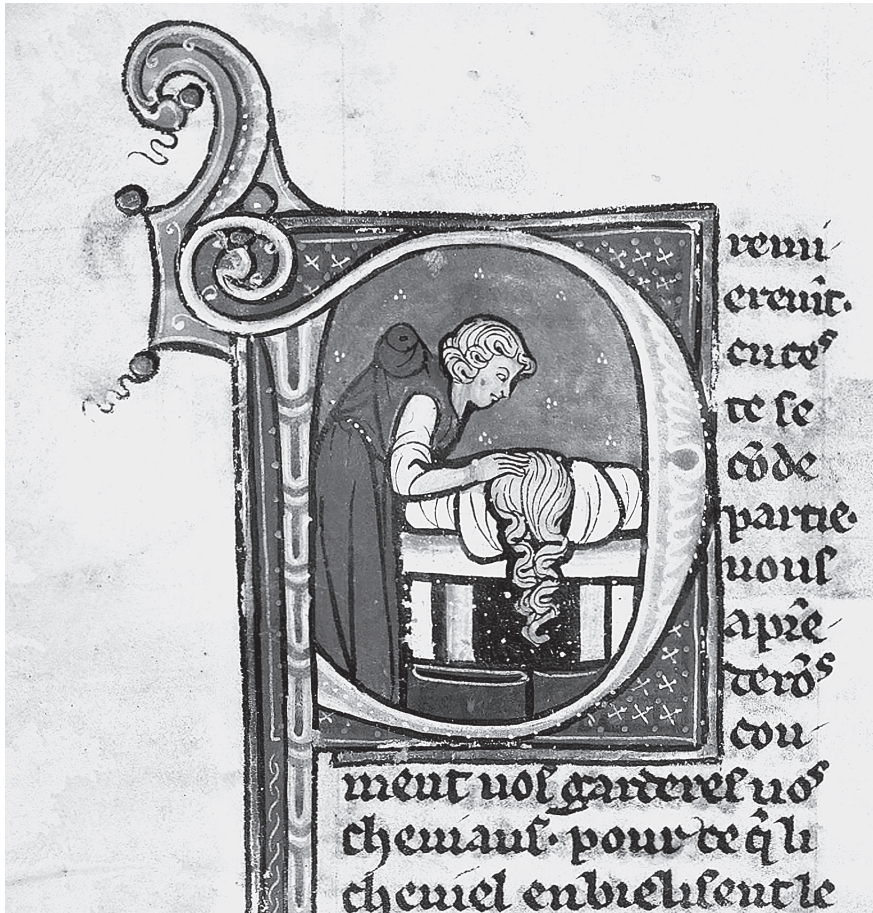 P remi-
erenīt.
en ceſ
te ſe
cōde
partie.
nouſ
aprē-
derōſ
cou-
ment uoſ gardereſ uoſ
cheuiauſ. pour ce q̄ li
cheuiel enbieliſent le